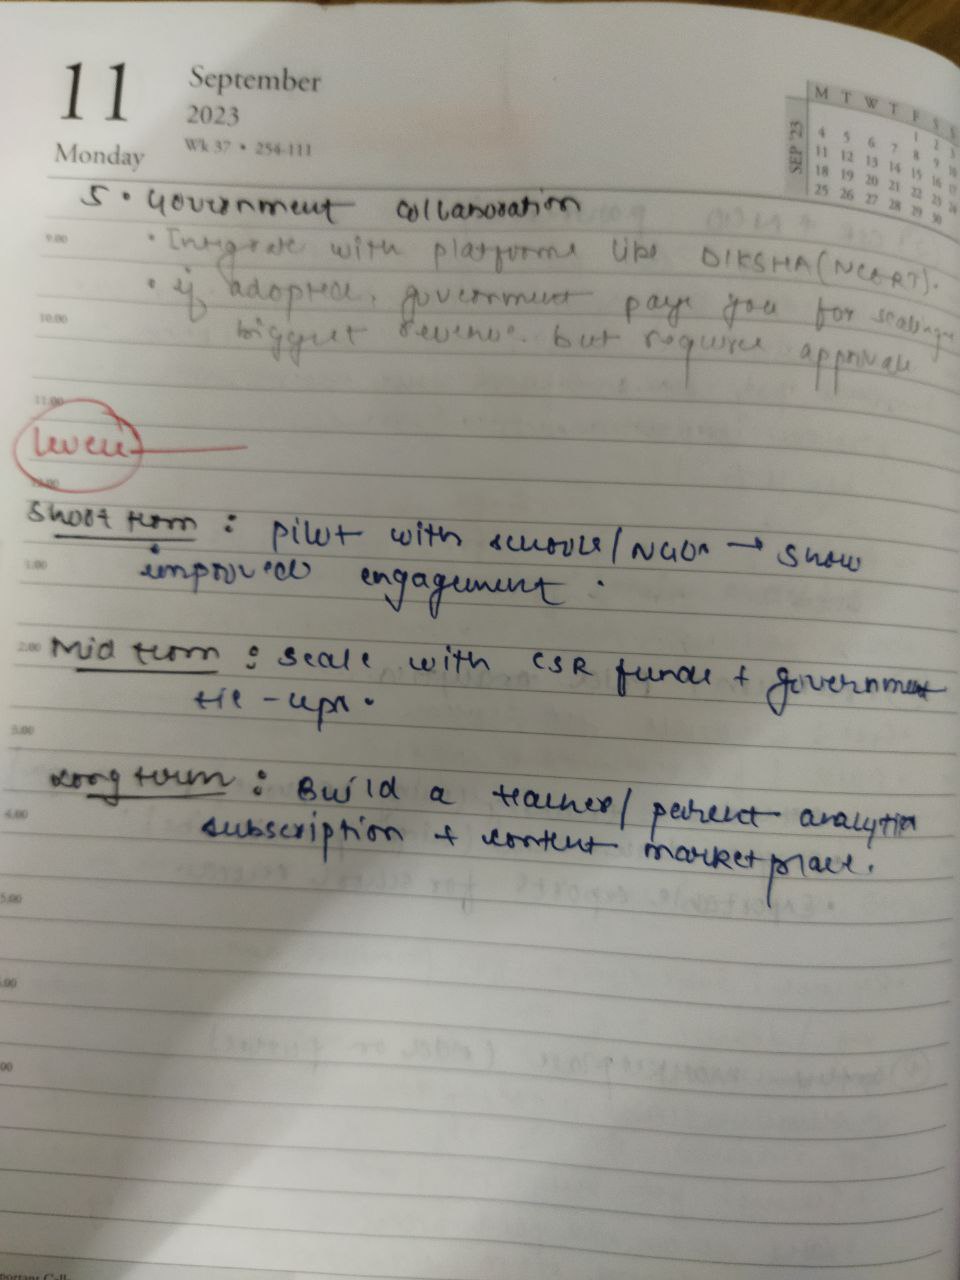 11
September
2023
Wk 37 • 254-111
Monday
SEP '23
M T W T F S S
1 2 3
4 5 6 7 8 9 10
11 12 13 14 15 16 17
18 19 20 21 22 23 24
25 26 27 28 29 30
5. Government collaboration
9.00
• Integrate with platforms like DIKSHA (NCERT).
• if adopted, government pays you for scaling
10.00
biggest revenue. but require approvals
11.00
level
12.00
Short term : pilot with schools/NGOs → show
1.00
improved engagement.
2.00
Mid term : Scale with CSR funds + government
tie-ups.
3.00
Long term : Build a teacher/parent analytics
4.00
subscription + content marketplace.
5.00